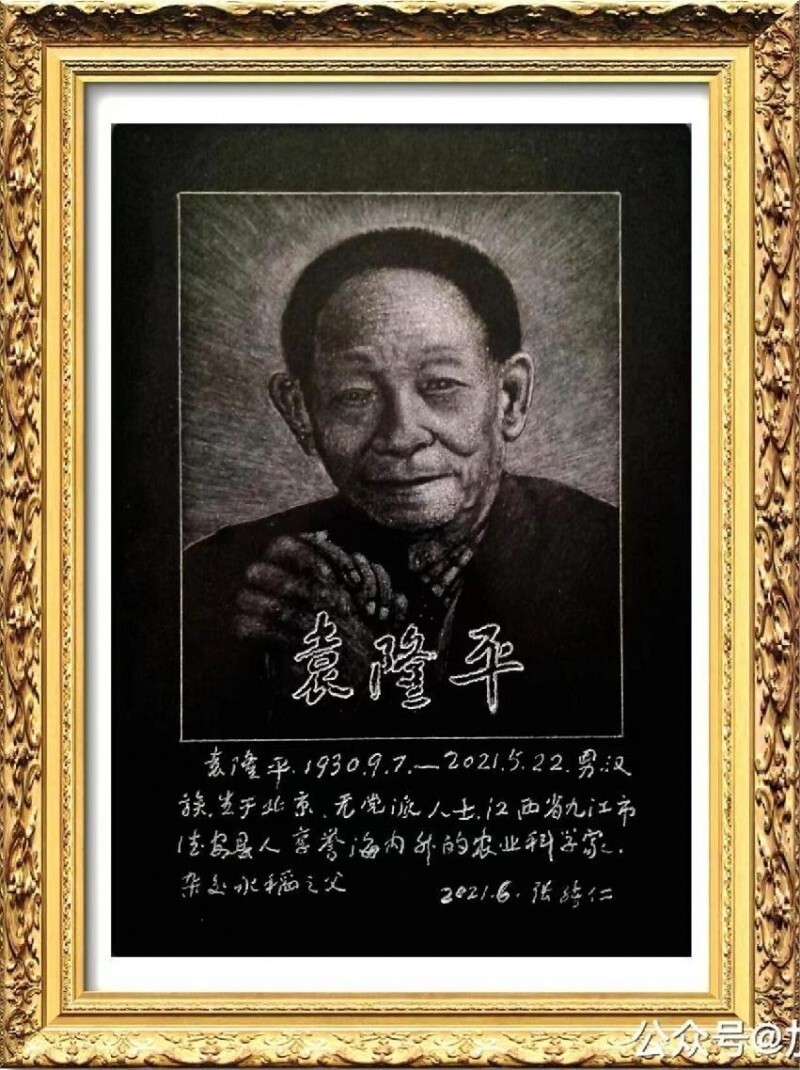 袁隆平
袁隆平.1930.9.7.—2021.5.22.男.汉
族.生于北京.无党派人士.江西省九江市
德安县人享誉海内外的农业科学家.
杂交水稻之父
2021.6.张绮仁
公众号@加